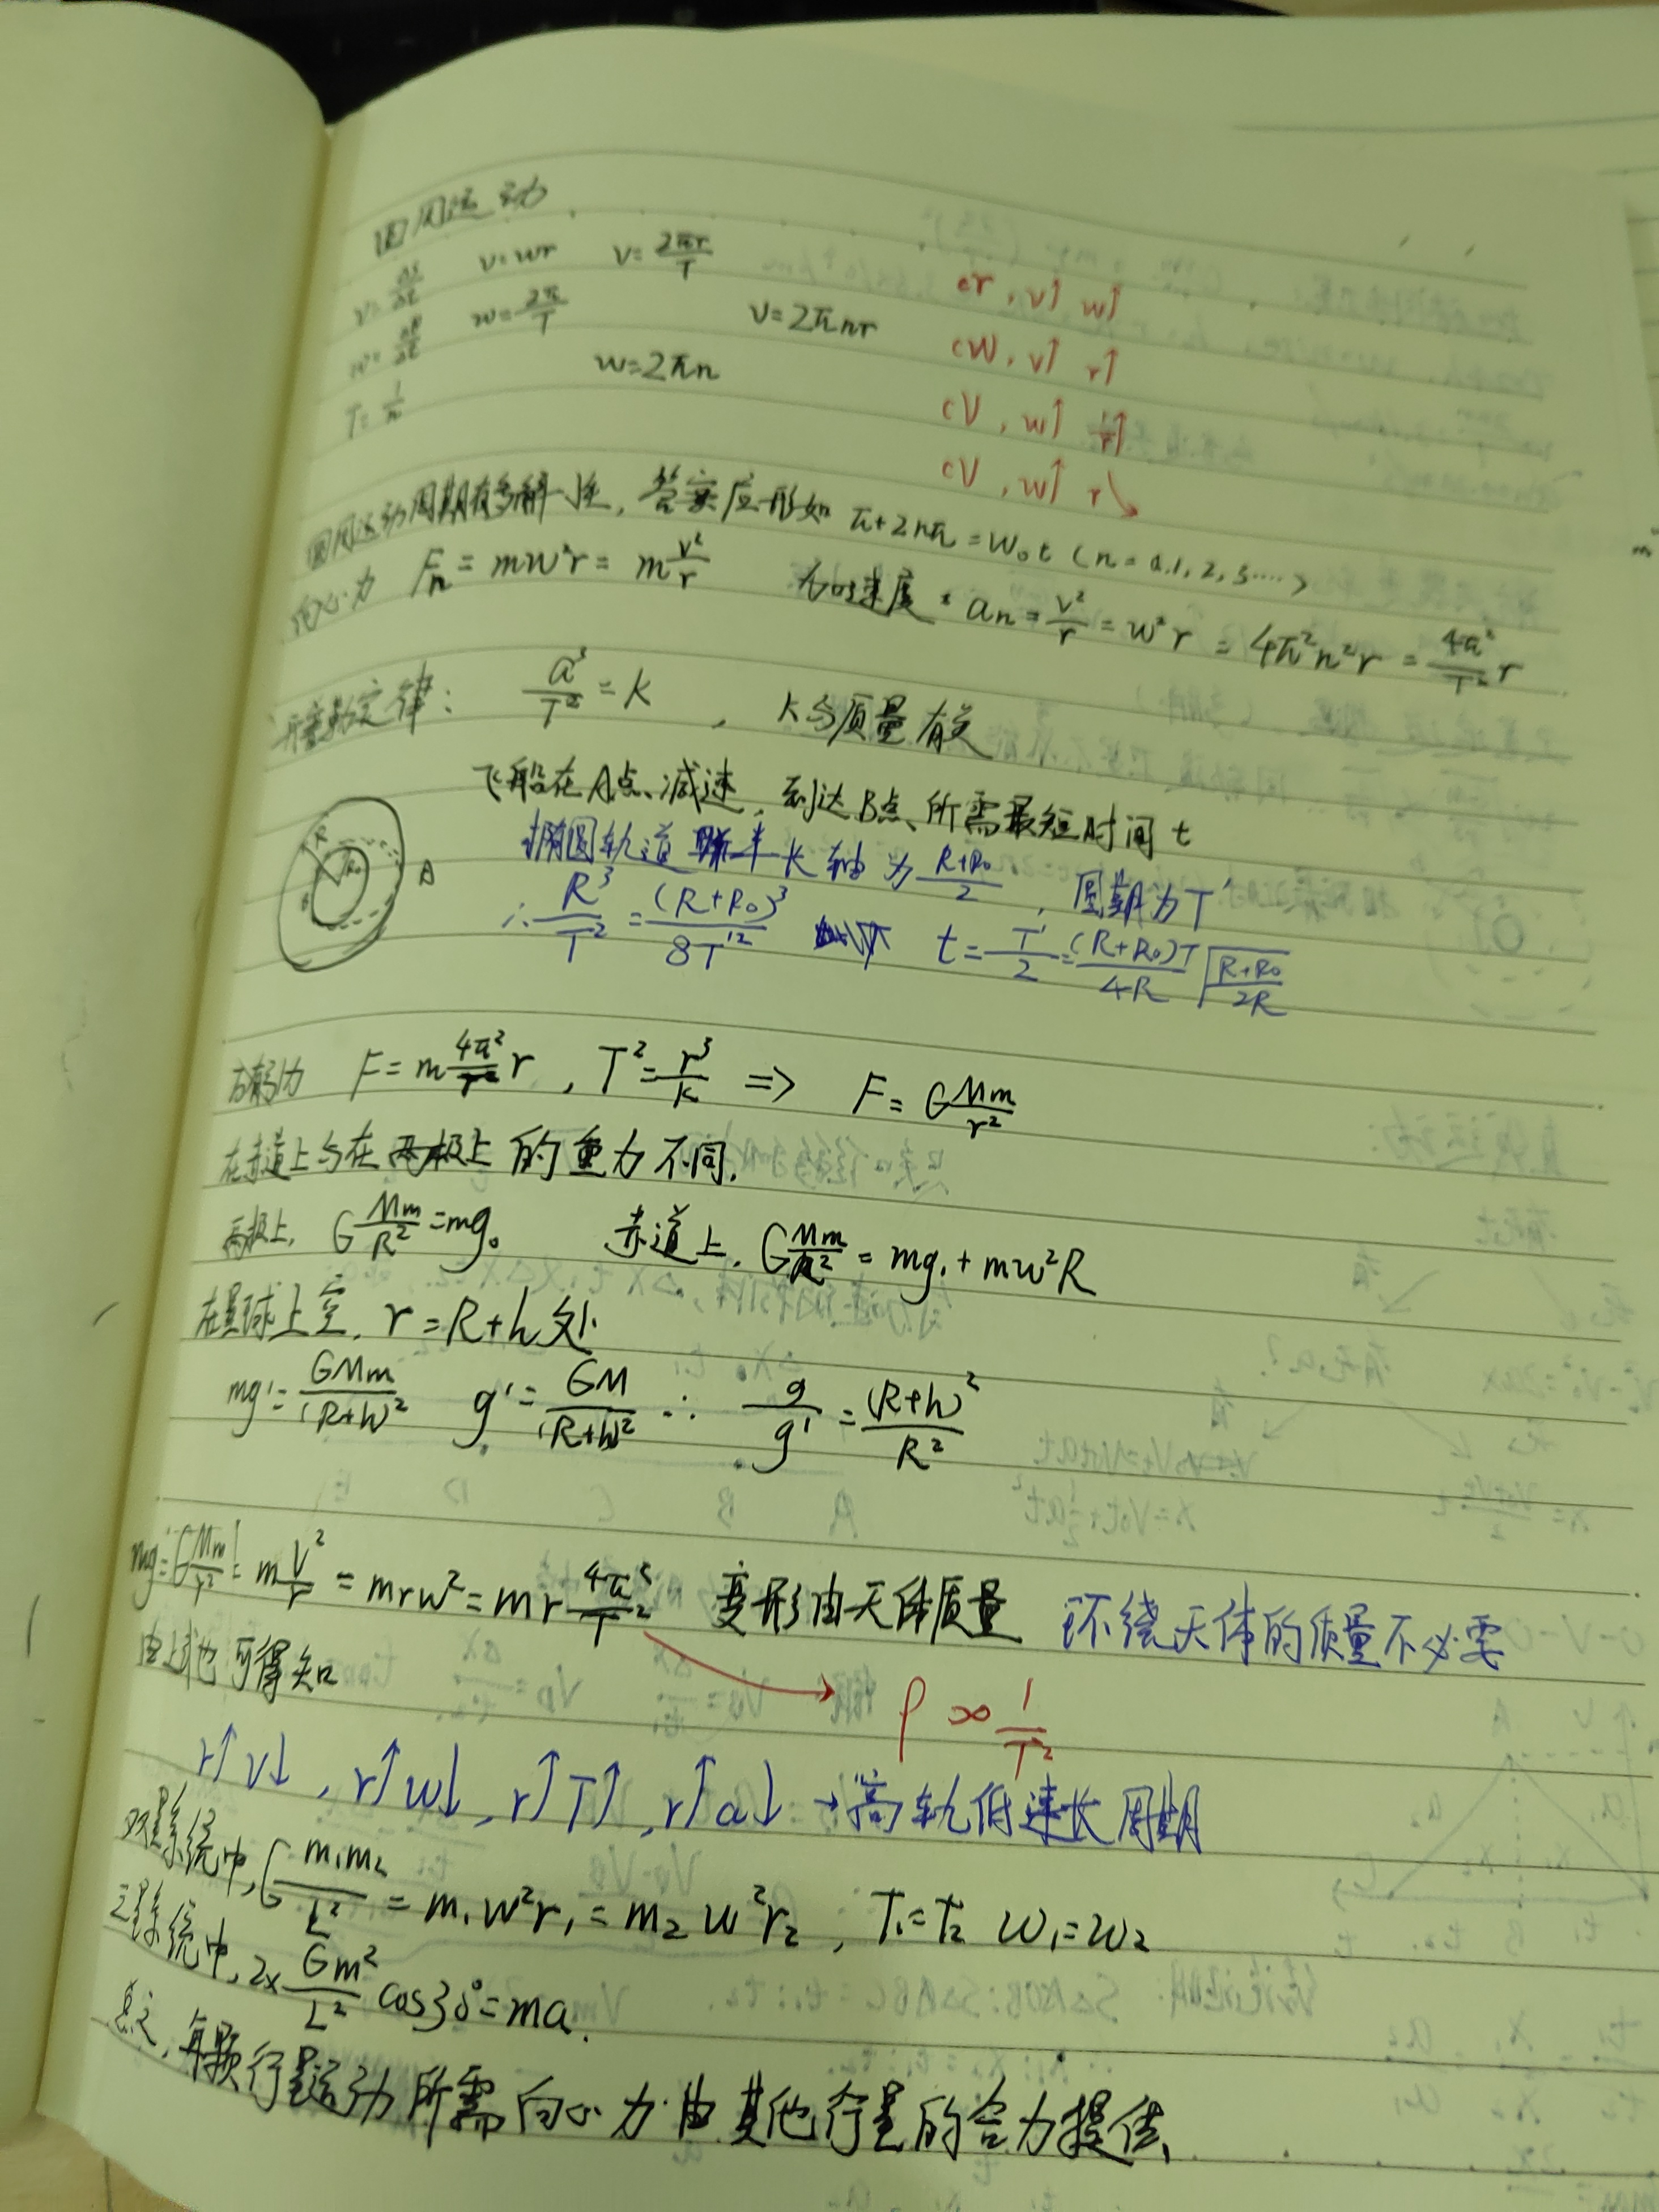 圆周运动
v=Δs/Δt v=wr v=2πr/T cr,v↑ w↑
w=Δθ/Δt w=2π/T v=2πnr cw,v↑ r↑
T=1/n w=2πn cv,w↑ 1/r↑
cv,w↑ r↘
圆周运动周期有多解性,答案应形如 π+2nπ=w₀t (n=0,1,2,3……)
向心力 Fn=mw²r=m v²/r 加速度:an=v²/r=w²r=4π²n²r=4π²/T² r
开普勒定律: a³/T²=k , k与质量有关
飞船在A点减速,到达B点所需最短时间t
R R₀ B A
椭圆轨道半长轴为 (R+R₀)/2 ,周期为T'
∴ R³/T²=(R+R₀)³/8T'² t=T'/2=(R+R₀)T/4R √((R+R₀)/2R)
万有引力 F=m 4π²/T² r , T²=r³/k ⇒ F=G Mm/r²
在赤道上与在两极上的重力不同.
两极上, G Mm/R²=mg₀ 赤道上, G Mm/R²=mg₁+mw²R
在星球上空, r=R+h处
mg'=GMm/(R+h)² g'=GM/(R+h)² ∴ g/g'=(R+h)²/R²
mg=G Mm/r²=m v²/r=mrw²=mr 4π²/T² 变形由天体质量 环绕天体的质量不必要
由上式也可得知 ρ∝1/T²
r↑v↓,r↑w↓,r↑T↑,r↑a↓→高轨低速长周期
双星系统中,G m₁m₂/L²=m₁w²r₁=m₂w²r₂, T₁=T₂ w₁=w₂
三星系统中,2×Gm²/L² cos30°=ma.
总之,每颗行星运动所需向心力由其他行星的合力提供、